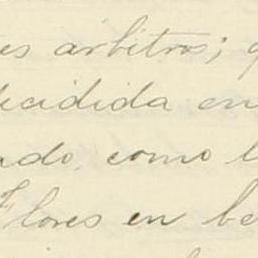 es árbitros; q
decidida en
ado, como l
Flores en be